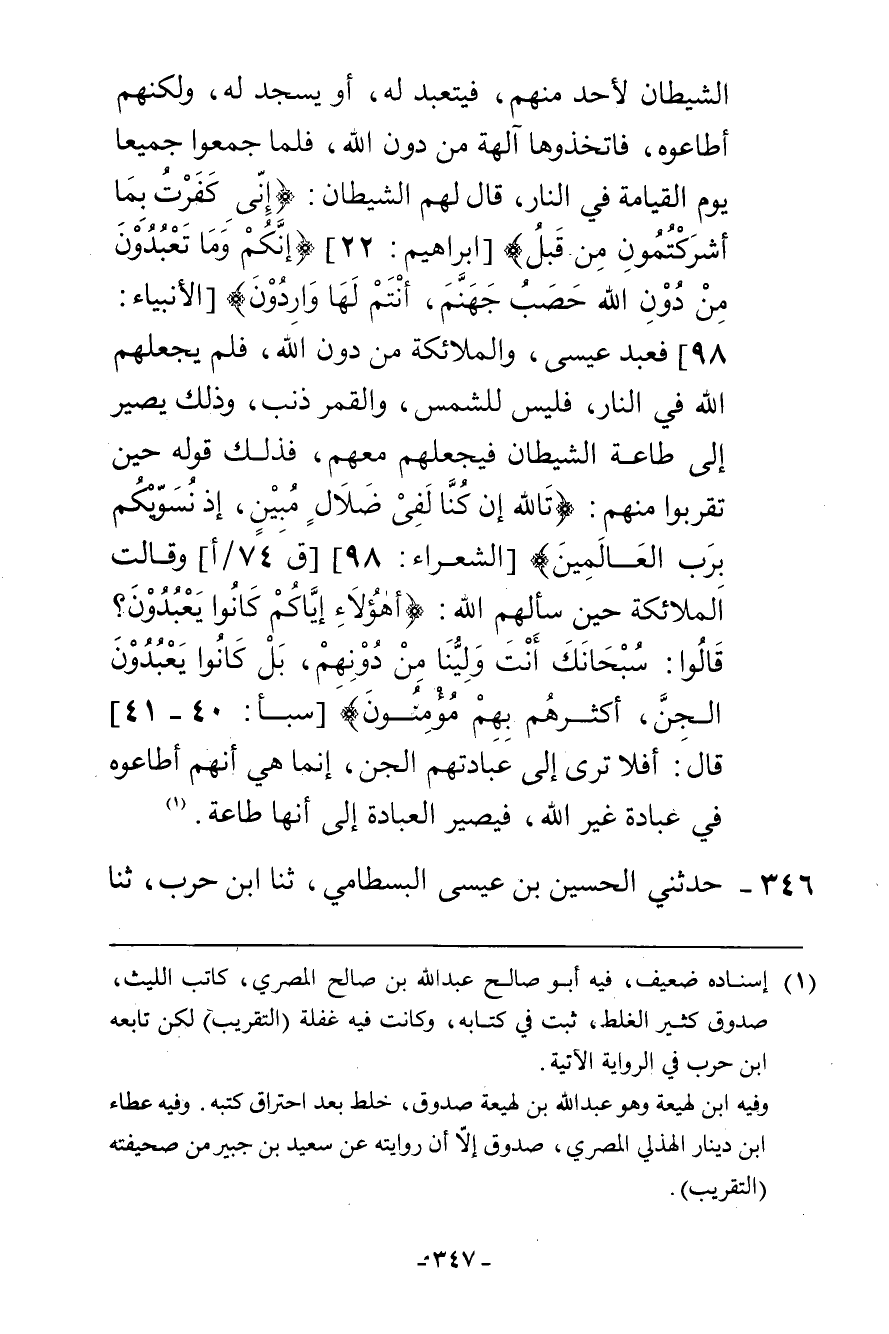 الشيطان لأحد منهم، فيتعبد له، أو يسجد له، ولكنهم
أطاعوه، فاتخذوها آلهة من دون الله، فلما جمعوا جميعا
يوم القيامة في النار، قال لهم الشيطان: ﴿إِنّى كَفَرْتُ بِمَا
أشرَكْتُمُونِ مِن قَبلُ﴾ [ابراهيم: ٢٢] ﴿إنَّكُمْ وَمَا تَعْبُدُوْنَ
مِنْ دُوْنِ الله حَصَبُ جَهَنَّمَ، أنْتَمْ لَهَا وَارِدُوْنَ﴾ [الأنبياء:
٩٨] فعبد عيسى، والملائكة من دون الله، فلم يجعلهم
الله في النار، فليس للشمس، والقمر ذنب، وذلك يصير
إلى طاعة الشيطان فيجعلهم معهم، فذلك قوله حين
تقربوا منهم: ﴿تَالله إن كُنَّا لَفِىْ ضَلَالٍ مُبِيْنٍ، إذ نُسَوّيْكُم
بِرَب العَالَمِينَ﴾ [الشعراء: ٩٨] [ق ٧٤/أ] وقالت
الملائكة حين سألهم الله: ﴿أهٰؤُلَاءِ إيَّاكُمْ كَانُوا يَعْبُدُوْنَ؟
قَالُوا: سُبْحَانَكَ أَنْتَ وَلِيُّنَا مِنْ دُوْنِهِمْ، بَلْ كَانُوا يَعْبُدُوْنَ
الجِنَّ، أكثرهُم بِهِمْ مُؤْمِنُونَ﴾ [سبأ: ٤٠ - ٤١]
قال: أفلا ترى إلى عبادتهم الجن، إنما هي أنهم أطاعوه
في عبادة غير الله، فيصير العبادة إلى أنها طاعة. (١)
٣٤٦ - حدثني الحسين بن عيسى البسطامي، ثنا ابن حرب، ثنا
(١) إسناده ضعيف، فيه أبو صالح عبدالله بن صالح المصري، كاتب الليث،
صدوق كثير الغلط، ثبت في كتابه، وكانت فيه غفلة (التقريب) لكن تابعه
ابن حرب في الرواية الآتية.
وفيه ابن لهيعة وهو عبدالله بن لهيعة صدوق، خلط بعد احتراق كتبه. وفيه عطاء
ابن دينار الهذلي المصري، صدوق إلّا أن روايته عن سعيد بن جبير من صحيفته
(التقريب).
- ٣٤٧ -